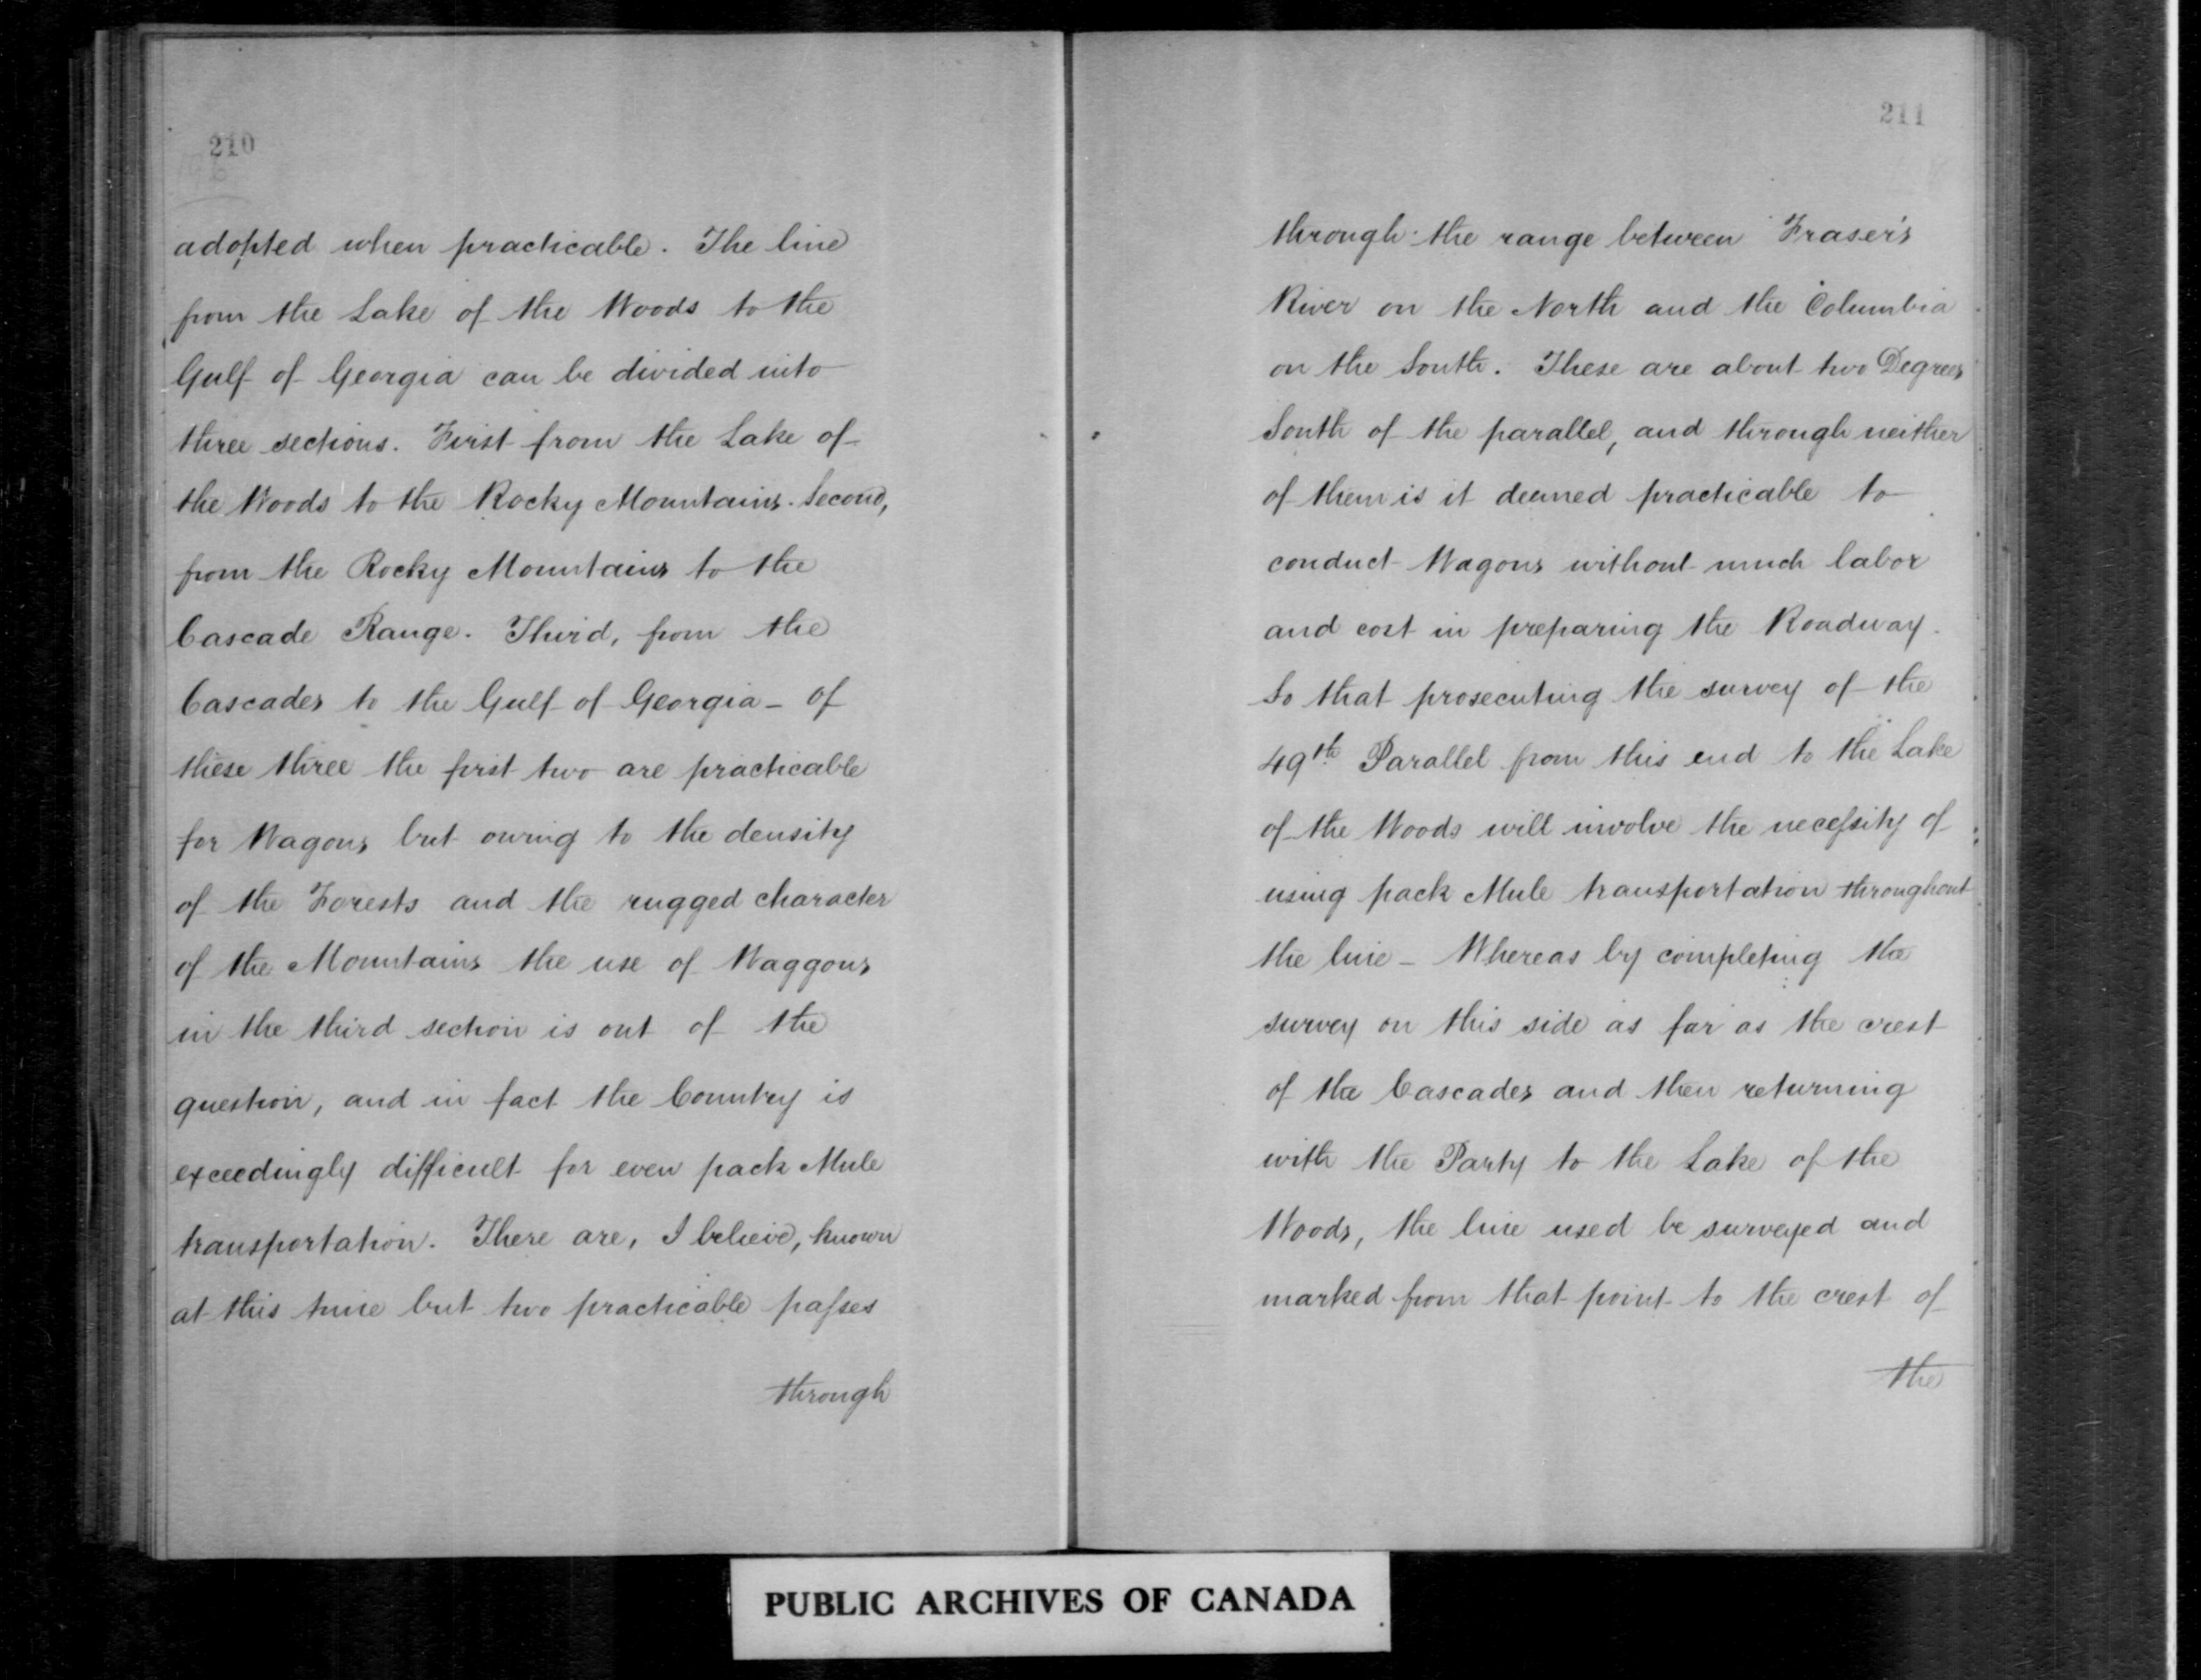 210
adopted when practicable. The line
from the Lake of the Woods to the
Gulf of Georgia can be divided into
three sections. First from the Lake of
the Woods to the Rocky Mountains. Second,
from the Rocky Mountains to the
Cascade Range. Third, from the
Cascades to the Gulf of Georgia - of
these three the first two are practicable
for Wagons but owing to the density
of the Forests and the rugged character
of the Mountains the use of Waggons
in the third section is out of the
question, and in fact the Country is
exceedingly difficult for even pack Mule
transportation. There are, I believe, known
at this time but two practicable passes
through
211
through the range between Fraser's
River on the North and the Columbia
on the South. These are about two Degrees
South of the parallel, and through neither
of them is it deemed practicable to
conduct Wagons without much labor
and cost in preparing the Roadway.
So that prosecuting the survey of the
49th Parallel from this end to the Lake
of the Woods will involve the necessity of
using pack Mule transportation throughout
the line - Whereas by completing the
survey on this side as far as the crest
of the Cascades and then returning
with the Party to the Lake of the
Woods, the line used be surveyed and
marked from that point to the crest of
the
PUBLIC ARCHIVES OF CANADA